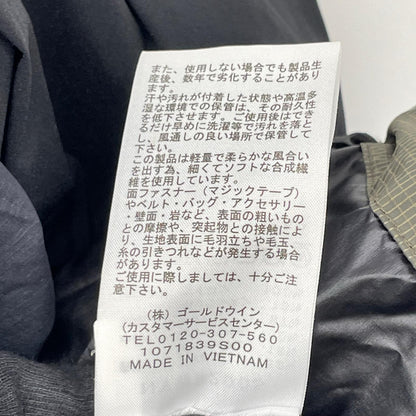 また、使用しない場合でも製品生
産後、数年で劣化することがありま
す。
汗や汚れが付着した状態や高温多
湿な環境での保管は、その耐久性
を低下させます。ご使用後はでき
るだけ早めに洗濯等で汚れを落と
し、風通しの良い場所で保管して
下さい。
この製品は軽量で柔らかな風合い
を出す為、細くてソフトな合成繊
維を使用しています。
面ファスナー（マジックテープ）
やベルト・バッグ・アクセサリー
・壁面・岩など、表面の粗いもの
との摩擦や、突起物との接触によ
り、生地表面に毛羽立ちや毛玉、
糸の引きつれなどが発生する場合
があります。
ご使用に際しましては、十分ご注
意下さい。
(株) ゴールドウイン
(カスタマーサービスセンター)
TEL0120-307-560
1071839S00
MADE IN VIETNAM